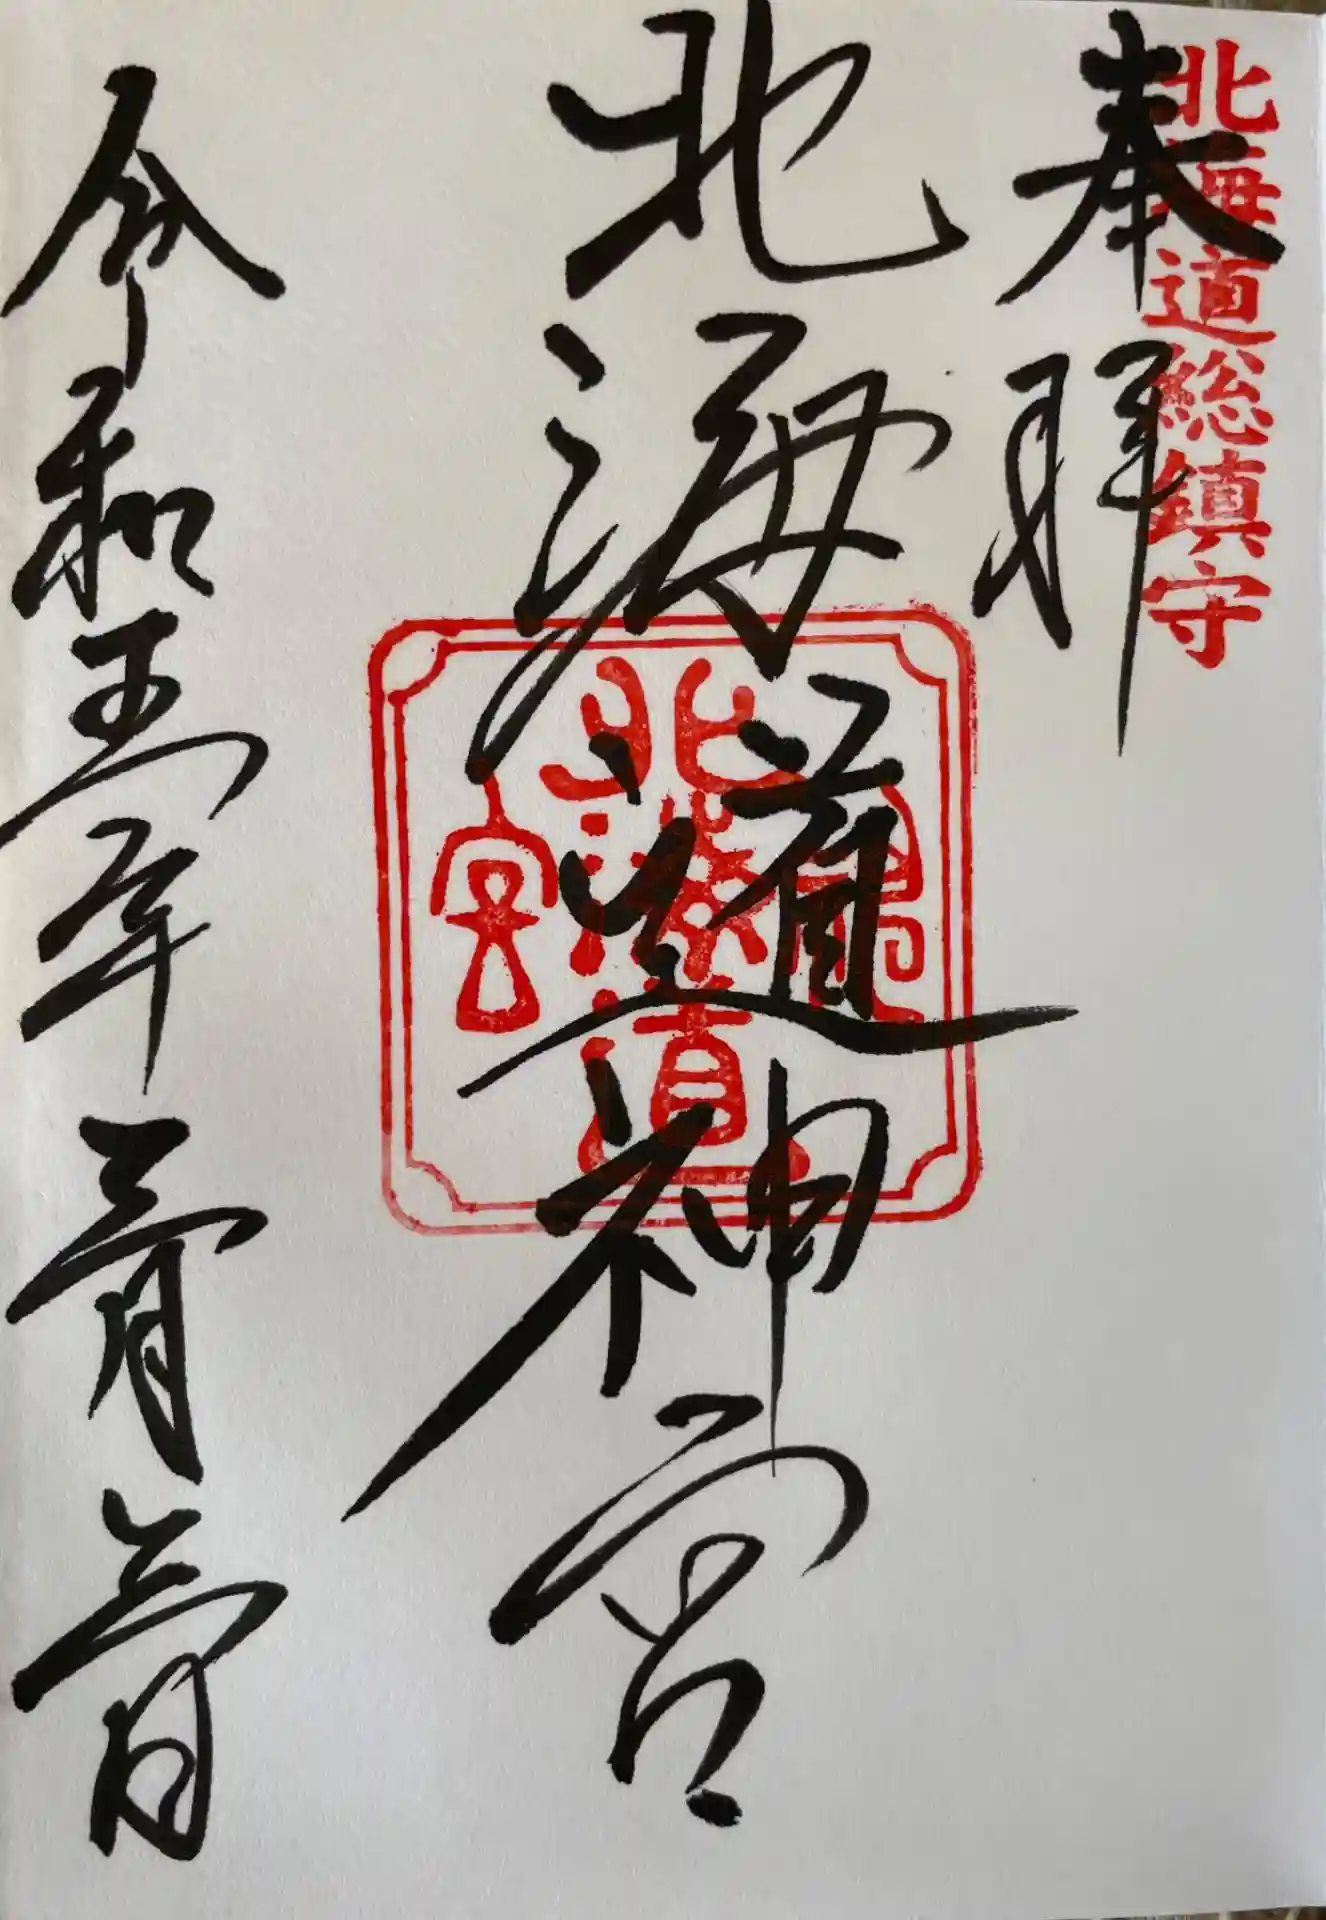 北海道総鎮守
奉拝
北海道神宮
神北海道宮
令和五年三月三日